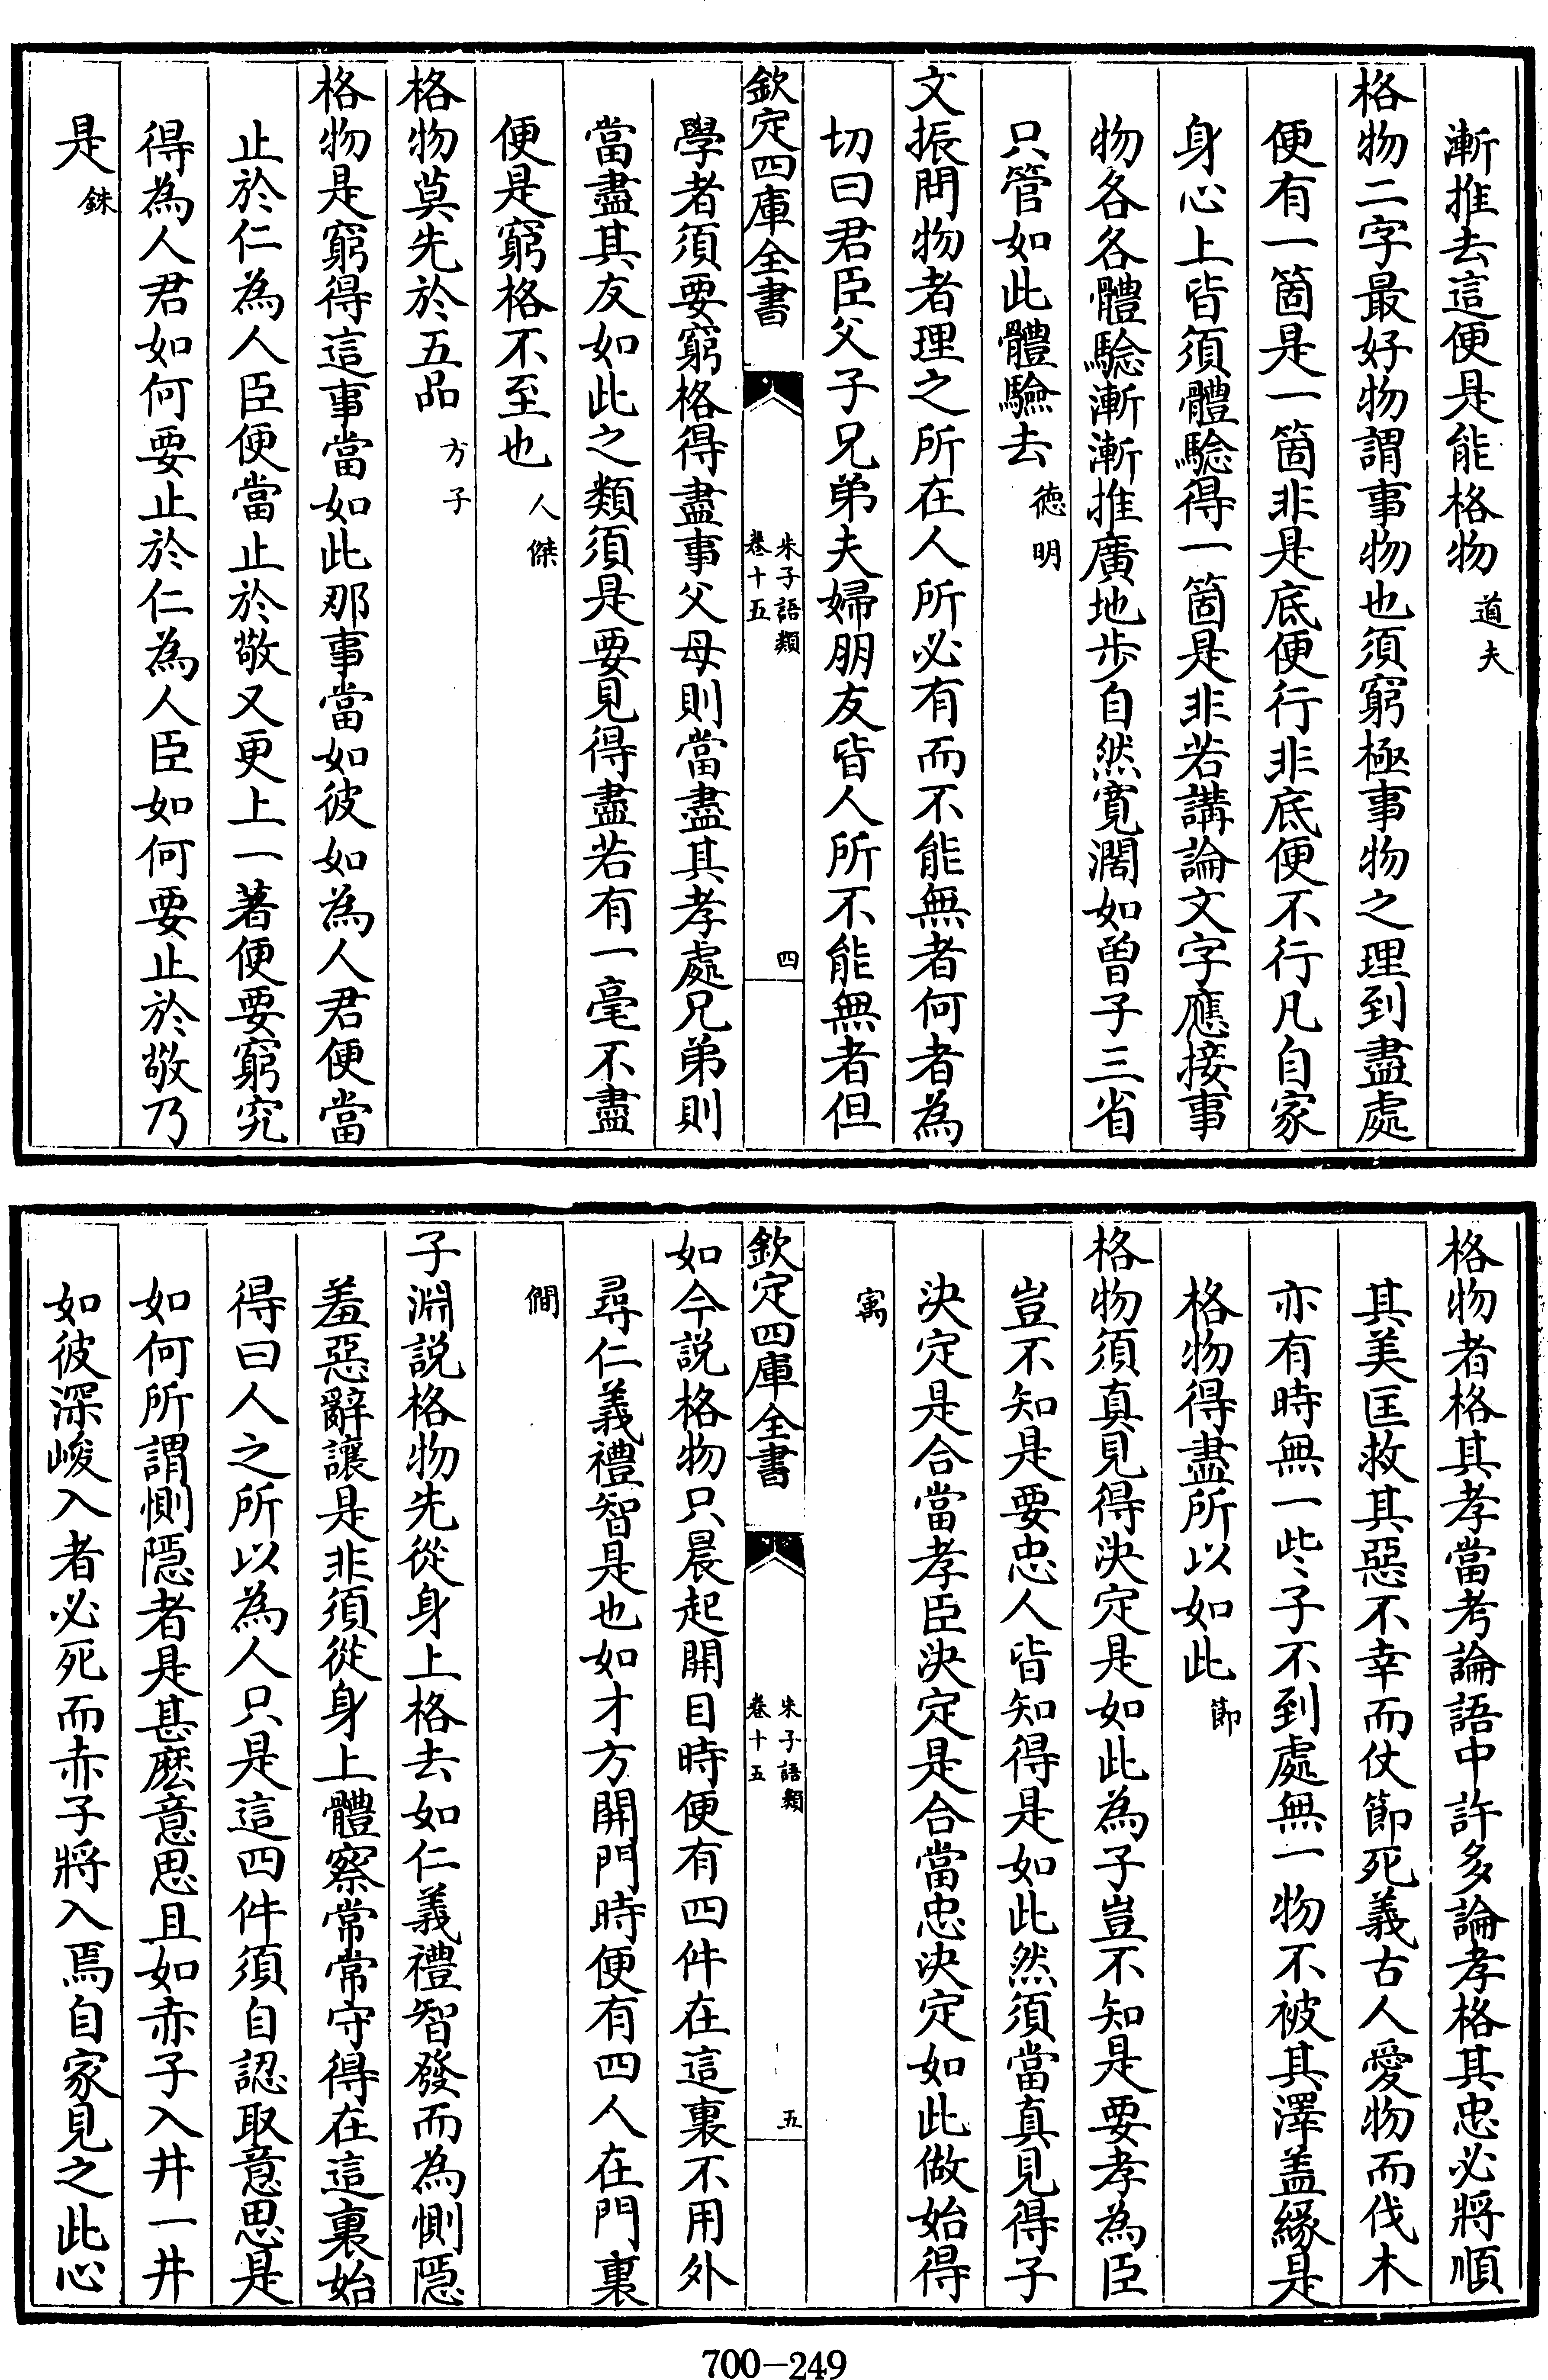 漸推去這便是能格物 道夫
格物二字最好物謂事物也須窮極事物之理到盡處
便有一箇是一箇非是底便行非底便不行凡自家
身心上皆須體驗得一箇是非若講論文字應接事
物各各體驗漸漸推廣地步自然寛濶如曽子三省
只管如此體驗去 徳明
文振問物者理之所在人所必有而不能無者何者為
切曰君臣父子兄弟夫婦朋友皆人所不能無者但
欽定四庫全書 朱子語類 卷十五 四
學者須要窮格得盡事父母則當盡其孝處兄弟則
當盡其友如此之類須是要見得盡若有一毫不盡
便是窮格不至也 人傑
格物莫先於五品 方子
格物是窮得這事當如此那事當如彼如為人君便當
止於仁為人臣便當止於敬又更上一著便要窮究
得為人君如何要止於仁為人臣如何要止於敬乃
是 銖
格物者格其孝當考論語中許多論孝格其忠必將順
其美匡救其惡不幸而仗節死義古人愛物而伐木
亦有時無一些子不到處無一物不被其澤盖緣是
格物得盡所以如此 節
格物須真見得決定是如此為子豈不知是要孝為臣
豈不知是要忠人皆知得是如此然須當真見得子
決定是合當孝臣決定是合當忠決定如此做始得
㝢
欽定四庫全書 朱子語類 卷十五 五
如今説格物只晨起開目時便有四件在這裏不用外
尋仁義禮智是也如才方開門時便有四人在門裏
僩
子淵説格物先從身上格去如仁義禮智發而為惻隠
羞惡辭讓是非須從身上體察常常守得在這裏始
得曰人之所以為人只是這四件須自認取意思是
如何所謂惻隠者是甚麽意思且如赤子入井一井
如彼深峻入者必死而赤子將入焉自家見之此心
700-249